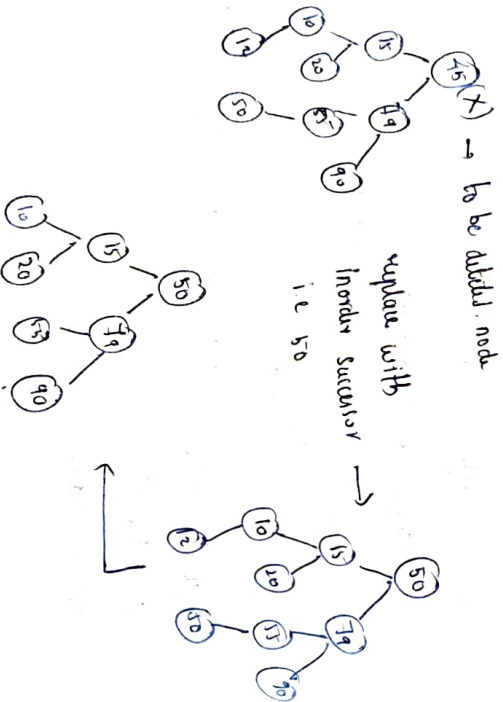 45 (X) → to be deleted. node
15 79
10 20 55 90
12 50
replace with
inorder successor →
i.e 50
50
15 79
10 20 55 90
12 50
50
15 79
10 20 55 90